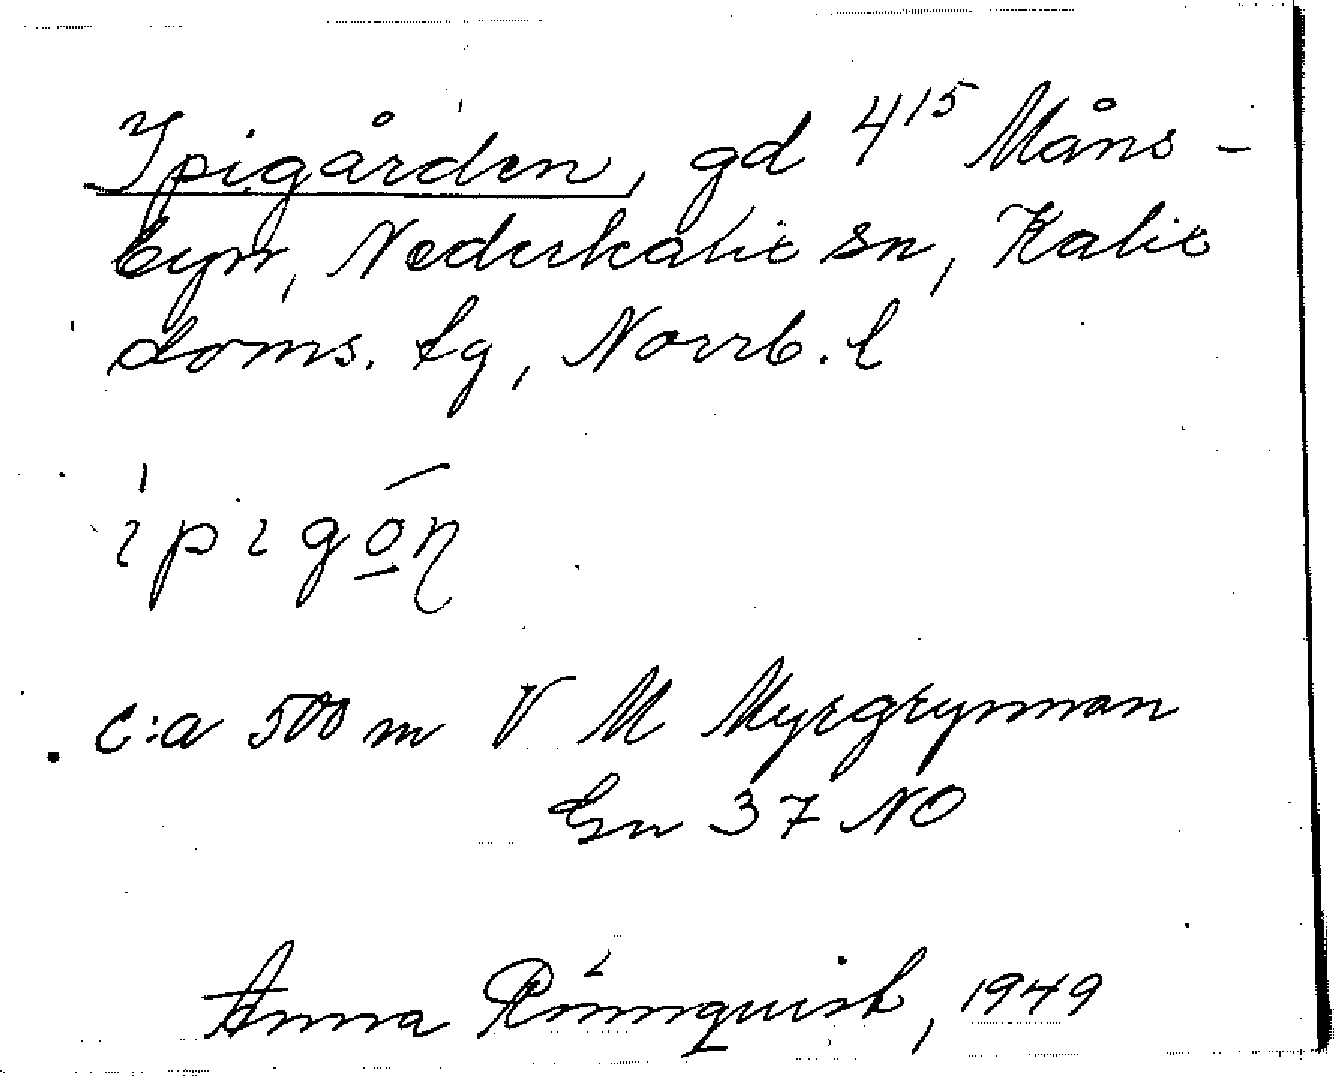 Ipigården, gd 4¹⁵ Måns-
byn, Nederkalix sn, Kalix
doms. tg, Norrb. l
ipigo̲n
c:a 500 m V M Myrgrynnan
Gn 37 NO
Anna Rönnquist, 1949